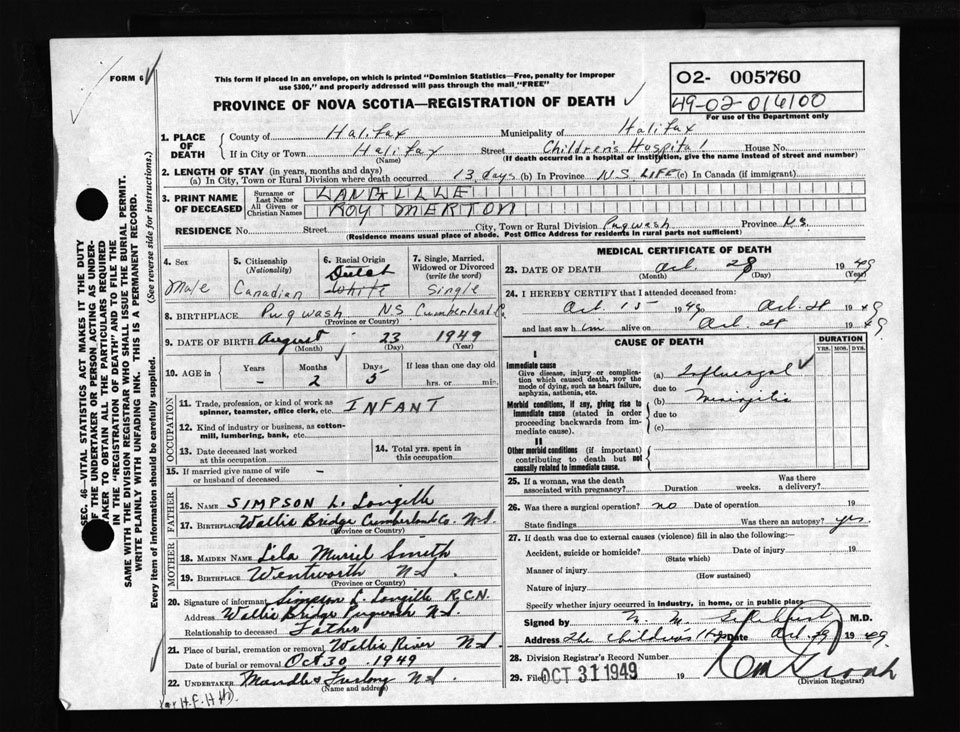 FORM 6
This form if placed in an envelope, on which is printed "Dominion Statistics—Free, penalty for improper
use $300," and properly addressed will pass through the mail "FREE"
O2- 005760
49-02-016100
For use of the Department only
PROVINCE OF NOVA SCOTIA—REGISTRATION OF DEATH
1. PLACE OF DEATH
County of Halifax Municipality of Halifax
If in City or Town Halifax Street Children's Hospital House No.
(Name) (If death occurred in a hospital or institution, give the name instead of street and number)
2. LENGTH OF STAY (in years, months and days)
(a) In City, Town or Rural Division where death occurred 13 days (b) In Province N.S. LIFE (c) In Canada (if immigrant)
3. PRINT NAME OF DECEASED
Surname or Last Name LANGILLE
All Given or Christian Names ROY MERTON
RESIDENCE No. Street City, Town or Rural Division Pugwash Province N.S.
(Residence means usual place of abode. Post Office Address for residents in rural parts not sufficient)
4. Sex Male
5. Citizenship (Nationality) Canadian
6. Racial Origin Dutch White
7. Single, Married, Widowed or Divorced (write the word) Single
8. BIRTHPLACE Pugwash N.S Cumberland Co.
(Province or Country)
9. DATE OF BIRTH August 23 1949
(Month) (Day) (Year)
10. AGE in Years - Months 2 Days 5 If less than one day old hrs. or min.
OCCUPATION
11. Trade, profession, or kind of work as spinner, teamster, office clerk, etc. INFANT
12. Kind of industry or business, as cotton-mill, lumbering, bank, etc.
13. Date deceased last worked at this occupation
14. Total yrs. spent in this occupation
15. If married give name of wife or husband of deceased -
FATHER
16. NAME SIMPSON L. Langille
17. BIRTHPLACE Wallis Bridge Cumberland Co. N.S
(Province or Country)
MOTHER
18. MAIDEN NAME Lila Muriel Smith
19. BIRTHPLACE Wentworth N.S.
(Province or Country)
20. Signature of informant Simpson L. Langille R.C.N.
Address Wallis Bridge Pugwash N.S.
Relationship to deceased Father
21. Place of burial, cremation or removal Wallis River N.S
Date of burial or removal Oct 30 1949
22. UNDERTAKER N.S
(Name and address)
MEDICAL CERTIFICATE OF DEATH
23. DATE OF DEATH Oct. 28 1949
(Month) (Day) (Year)
24. I HEREBY CERTIFY that I attended deceased from:
Oct. 15 1949 Oct. 28 1949
and last saw him alive on Oct. 28 1949
CAUSE OF DEATH
DURATION
YRS. MOS. DYS.
I
Immediate cause
Give disease, injury or complication which caused death, NOT the mode of dying, such as heart failure, asphyxia, asthenia, etc.
(a) Influenzal
due to
Morbid conditions, if any, giving rise to immediate cause (stated in order proceeding backwards from immediate cause).
(b) Meningitis
due to
(c)
II
Other morbid conditions (if important) contributing to death but not causally related to immediate cause.
25. If a woman, was the death associated with pregnancy? Duration weeks. Was there a delivery?
26. Was there a surgical operation? no Date of operation 19
State findings Was there an autopsy? yes.
27. If death was due to external causes (violence) fill in also the following:—
Accident, suicide or homicide? Date of injury 19
(State which)
Manner of injury
(How sustained)
Nature of injury
Specify whether injury occurred in industry, in home, or in public place
Signed by M.D.
Address The Children's Hosp Date Oct. 29 1949
28. Division Registrar's Record Number
29. Filed OCT 31 1949 19
(Division Registrar)
SEC. 46—VITAL STATISTICS ACT MAKES IT THE DUTY
OF THE UNDERTAKER OR PERSON ACTING AS UNDER-
TAKER TO OBTAIN ALL THE PARTICULARS REQUIRED
IN THE "REGISTRATION OF DEATH" AND TO FILE THE
SAME WITH THE DIVISION REGISTRAR WHO SHALL ISSUE THE BURIAL PERMIT.
WRITE PLAINLY WITH UNFADING INK. THIS IS A PERMANENT RECORD.
Every item of information should be carefully supplied. (See reverse side for instructions.)